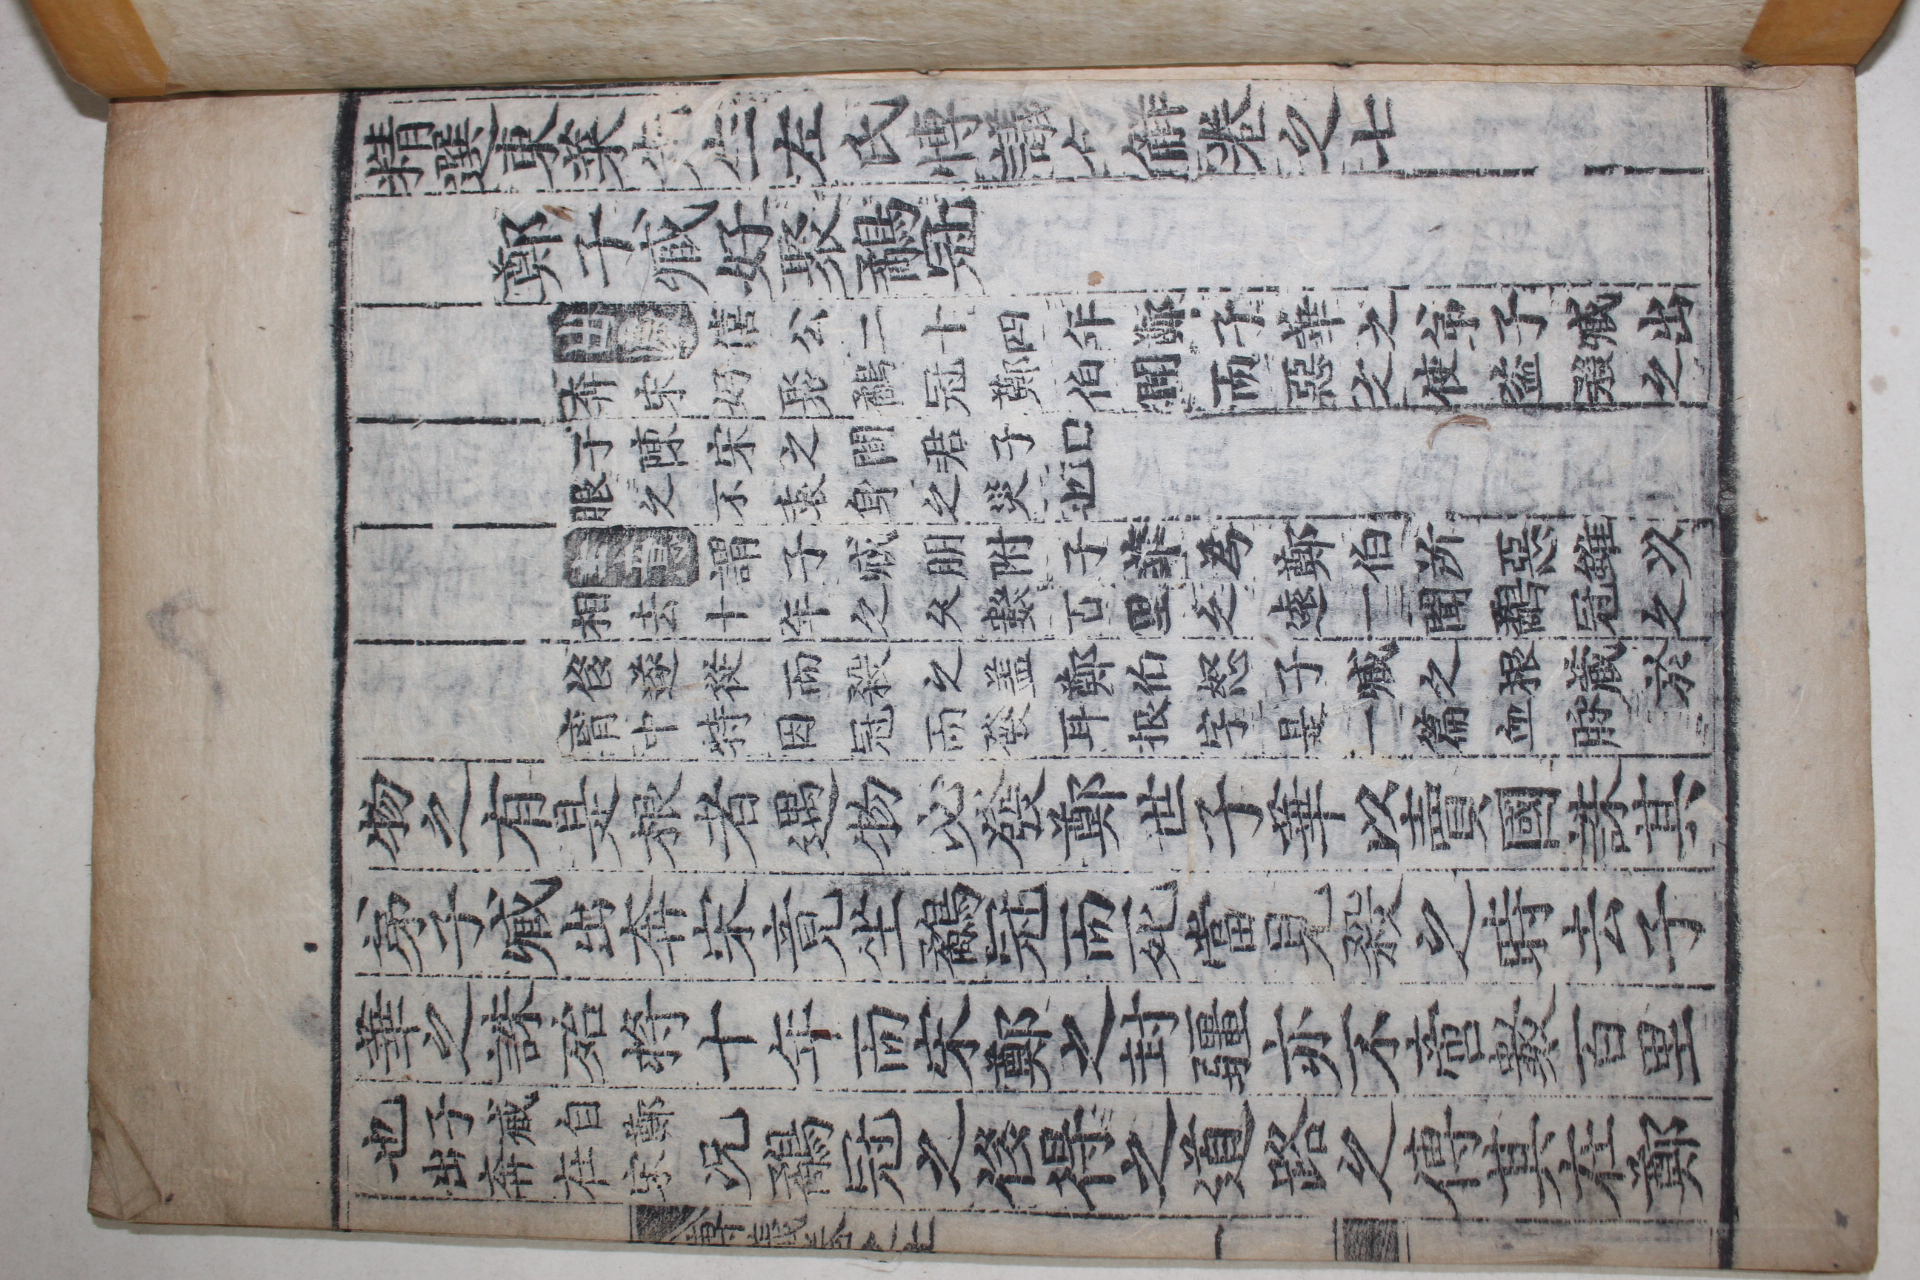 精選東萊先生左氏博議句解卷之七
鄭子臧好聚鷸冠
出處僖公二十四年鄭子華之弟子臧出
奔宋好聚鷸冠鄭伯聞而惡之使盜殺之
于陳宋之間君子曰
服之不衷身之災也
主意謂子臧朋附子華爲鄭伯所惡雖以
相去十年之久數百里之遠一聞鷸冠之
後遂從而殺之盖鄭伯怒子臧之根藏於
胷中特因冠而發耳根字是一篇血脉
物之有是根者遇物必發鄭世子華以賣國誅其
弟子臧出奔宋竟坐鷸冠而死當見殺之之時去子
華之誅殆將十年而宋鄭之封疆亦不啻數百里
也子臧自鄭出奔在宋况鷸冠之後得之道路之傳其在鄭
博議卷之七
一